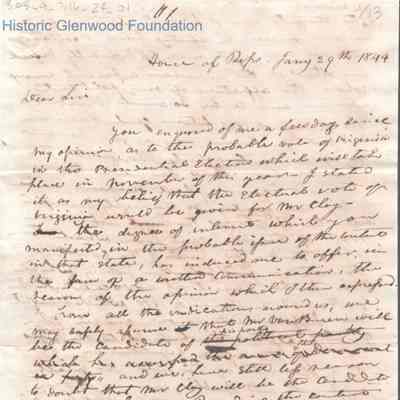 Historic Glenwood Foundation
House of Reps. Jany 29th 1844
Dear Sir
You enquired of me a few days since
my opinion as to the probable vote of Virginia
in the Presidential Election which will take
place in November of this year. I stated
it as my belief that the Electoral vote of
Virginia would be given for Mr Clay
the degree of interest which you
manifest, in the probable issue of the contest
in that state, has induced me to offer, in
the form of a written communication, the
reasons of the opinion which I then expressed.
From all the indications around us, we
may safely that Mr Van Buren will
be the candidate of
which has
and we have still less reason
to doubt that Mr Clay will be the candidate